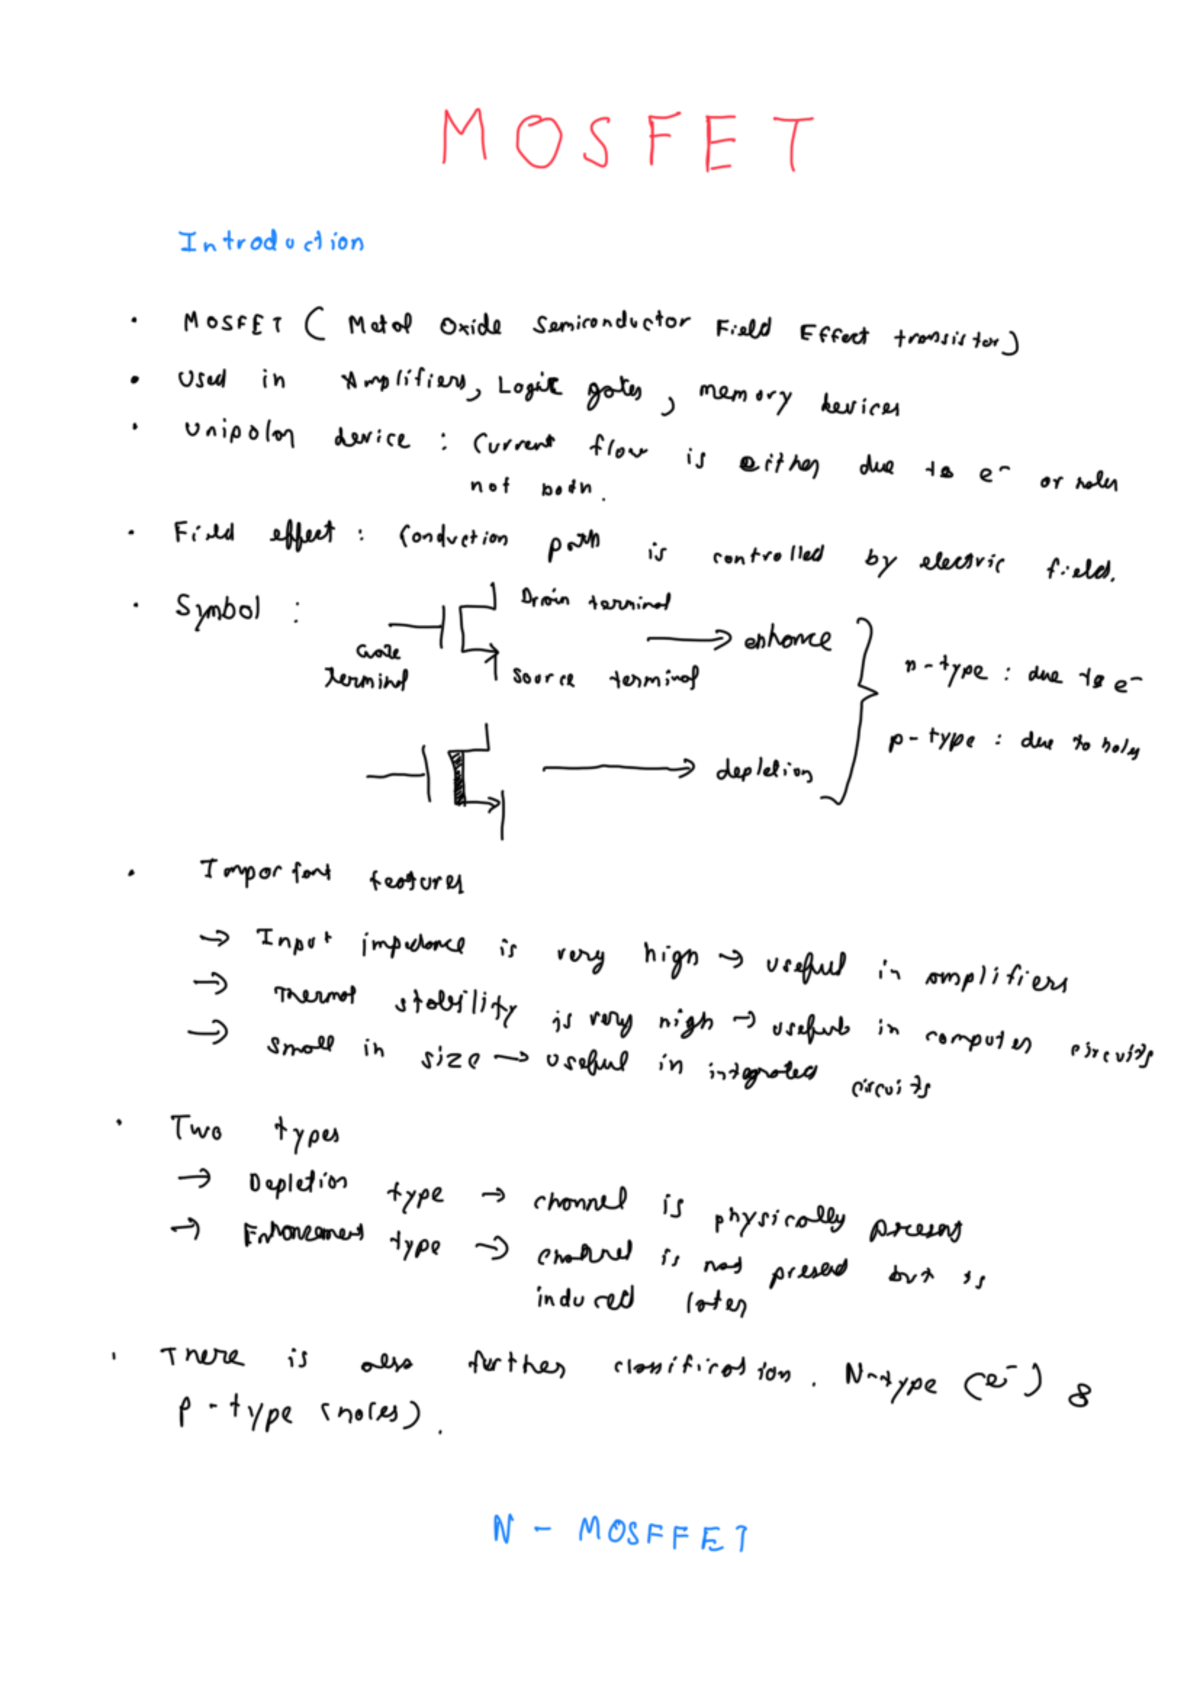 MOSFET
Introduction
· MOSFET ( Metal Oxide Semiconductor Field Effect transistor)
· Used in Amplifiers, Logic gates, memory devices
· Unipolar device : Current flow is either due to e⁻ or holes
not both.
· Field effect : Conduction path is controlled by electric field.
· Symbol :
Drain terminal
Gate
terminal
Source terminal
→ enhance
→ depletion
n-type : due to e⁻
p-type : due to holes
· Important features
→ Input impedance is very high → useful in amplifiers
→ Thermal stability is very high → useful in computer circuits
→ Small in size → useful in integrated circuits
· Two types
→ Depletion type → channel is physically present
→ Enhancement type → channel is not present but is
induced later
· There is also further classification. N-type (e⁻) &
p-type (holes).
N - MOSFFET